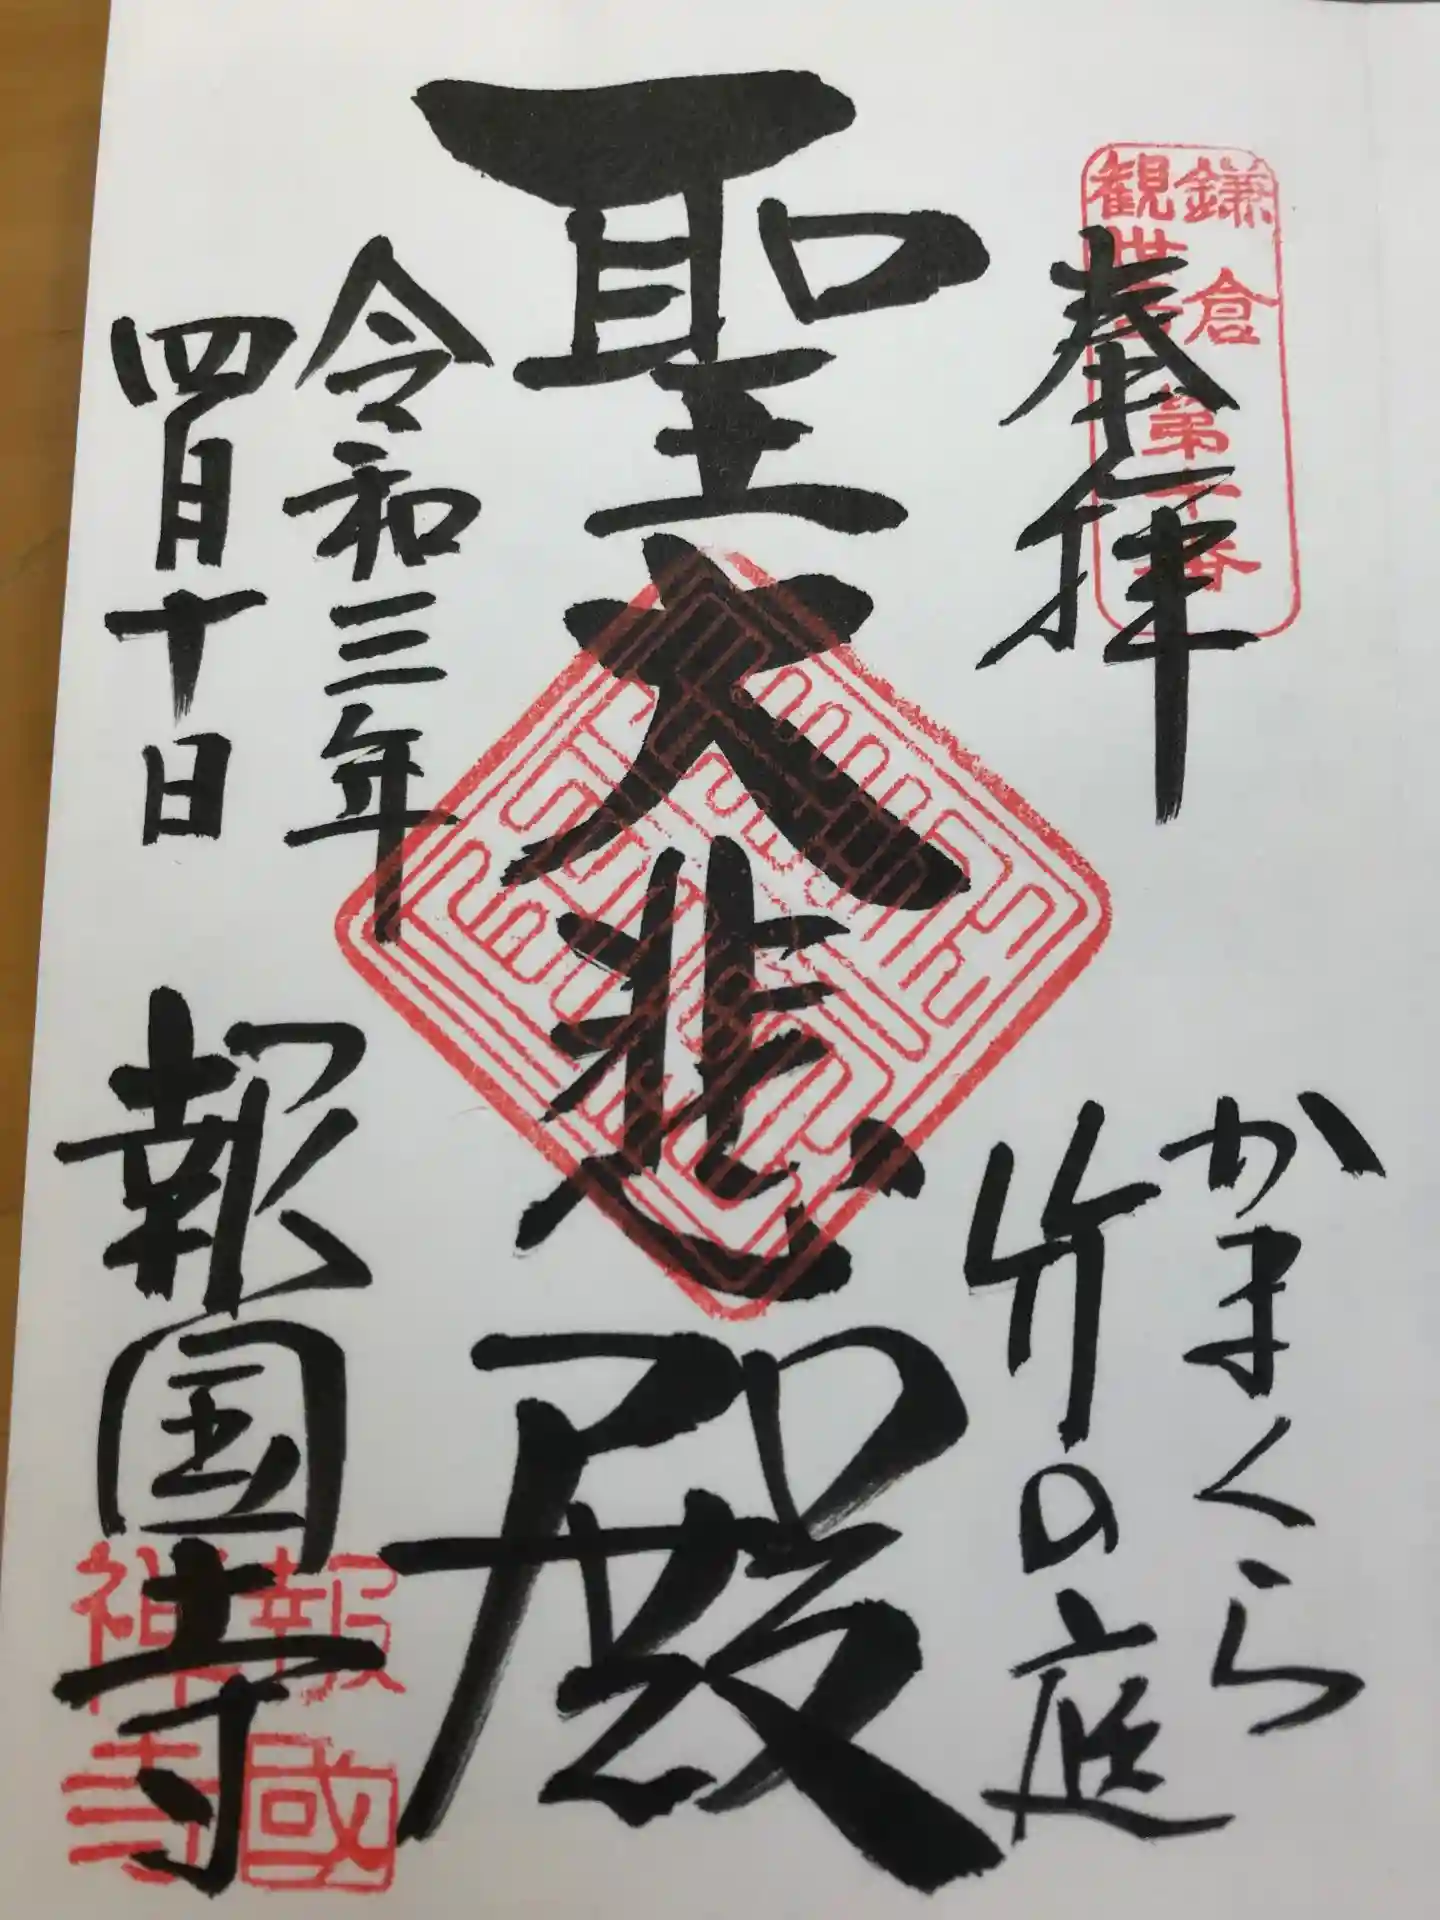 奉拝
鎌倉
観世音
第十番
かまくら
竹の庭
聖大悲殿
令和三年
四月十日
報国寺
報國
禅寺